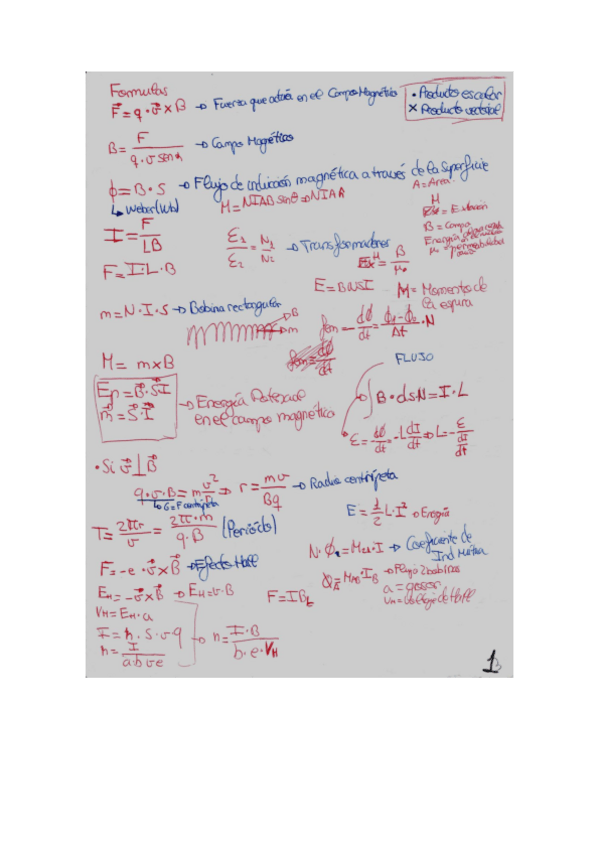 Formulas
F⃗ = q · v⃗ × B → Fuerza que actúa en el Campo Magnético
• Producto escalar
× Producto vectorial
B = F / q · v senα → Campo Magnético
ϕ = B · S → Flujo de inducción magnética a través de la superficie
↳ Weber (Wb)
M = NIAB senθ ⇒ NIAB
A = Area
M
B = Campo
I = F / LB
F = I · L · B
ε₁ / ε₂ = N₁ / N₂ → Transformadores
= B / μ₀
E = BWSI
M = Momentos de la espira
m = N · I · S → Bobina rectangular
B
m
fem = - dϕ / dt = ϕ₁ - ϕ₂ / Δt · N
fem = dϕ / dt
M = m × B
FLUJO
Ep = B⃗ · S⃗ I
m⃗ = S⃗ · I
→ Energía Potencial en el campo magnético
→ ∫ B · ds · N = I · L
ε = - dϕ / dt = - L dI / dt ⇒ L = - ε / dI / dt
• Si v⃗ ⊥ B⃗
q · v · B = m v² / R ⇒ r = mv / Bq → Radio centrípeta
↳ G = F centrípeta
E = 1 / 2 L · I² → Energía
T = 2πr / v = 2π · m / q · B (Periodo)
N · ϕ = M · I → Coeficiente de Ind Mutua
F = -e · v⃗ × B⃗ → Efecto Hall
ϕ = M · I_B → Flujo 2 bobinas
a = grosor
V_H = Voltaje de Hall
E_H = - v⃗ × B⃗ → E_H = v · B
F = I B L
V_H = E_H · a
I = n · S · v · q
n = I / a · b · v · e
→ n = I · B / b · e · V_H
1